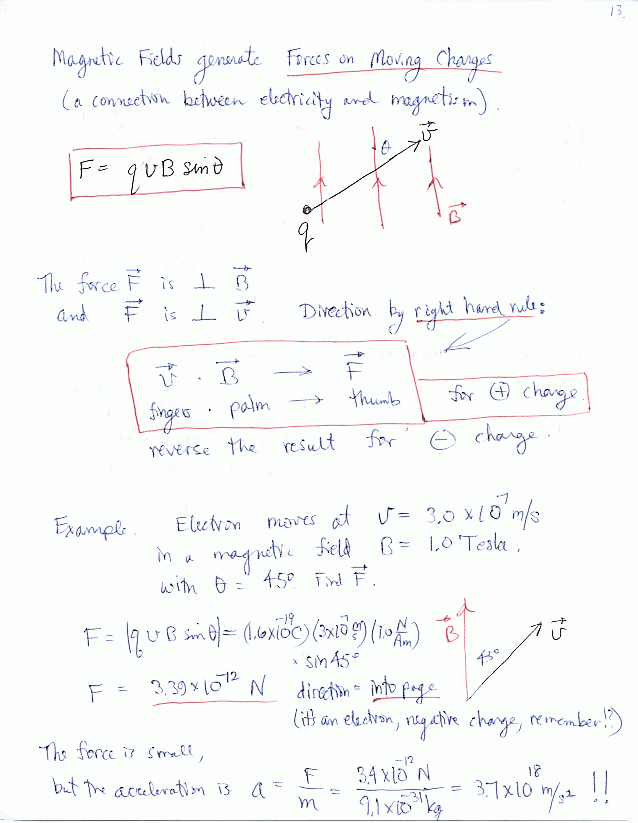 13
Magnetic Fields generate Forces on Moving Charges
(a connection between electricity and magnetism).
F = qvB sinθ
θ
v⃗
q
B⃗
The force F⃗ is ⊥ B⃗
and F⃗ is ⊥ v⃗. Direction by right hand rule:
v⃗ . B⃗ → F⃗
fingers . palm → thumb for ⊕ charge
reverse the result for ⊖ charge.
Example. Electron moves at v = 3.0 x 10⁷ m/s
in a magnetic field B = 1.0 Tesla,
with θ = 45°. Find F⃗.
F = |qvB sinθ| = (1.6x10⁻¹⁹C)(3x10⁷ m/s)(1.0 N/Am)
x sin45°
B⃗
45°
v⃗
F = 3.39x10⁻¹² N direction = into page
(it's an electron, negative charge, remember!?)
The force is small,
but the acceleration is a = F/m = 3.4x10⁻¹² N / 9.1x10⁻³¹ kg = 3.7x10¹⁸ m/s² !!